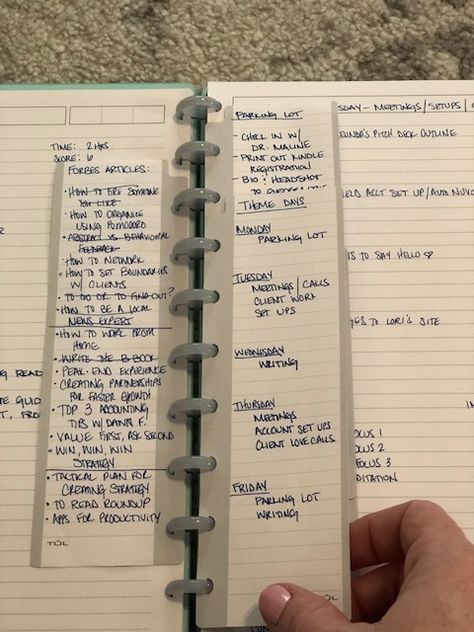 TIME: 2 HRS
SCORE: 6
FORBES ARTICLES:
• HOW TO FIRE SOMEONE
YOU LIKE
• HOW TO ORGANIZE
USING POMODORO
• ABSTRACT VS BEHAVIORAL
FEEDBACK
• HOW TO NETWORK
• HOW TO SET BOUNDARIES
W/ CLIENTS
• TO DO OR TO FIND OUT?
• HOW TO BE A LOCAL
NEWS EXPERT
• HOW TO WORK FROM
HOME
• WRITE THE B-BOOK
• PEAK-END EXPERIENCE
• CREATING PARTNERSHIPS
FOR FASTER GROWTH
• TOP 3 ACCOUNTING
TIPS W/ DAWN F.
• VALUE FIRST, ASK SECOND
• WIN, WIN, WIN
STRATEGY
• TACTICAL PLAN FOR
CREATING STRATEGY
• TO READ ROUNDUP
• APPS FOR PRODUCTIVITY
TUL
NG READ
TE GUID
T, FRO
PARKING LOT
- CHECK IN W/
DR. MALINE
- PRINT OUT KINDLE
REGISTRATION
- BIO + HEADSHOT
TO
THEME DAYS
MONDAY
PARKING LOT
TUESDAY
MEETINGS/CALLS
CLIENT WORK
SET UPS
WEDNESDAY
WRITING
THURSDAY
MEETINGS
ACCOUNT SET UPS
CLIENT LOVE CALLS
FRIDAY
PARKING LOT
WRITING
TUL
SDAY - MEETINGS/SETUPS/
PITCH DECK OUTLINE
ELD ACCT SET UP/AUTO
TS TO SAY HELLO ♡
GES TO LORI'S SITE
OCUS 1
OCUS 2
FOCUS 3
DITATION